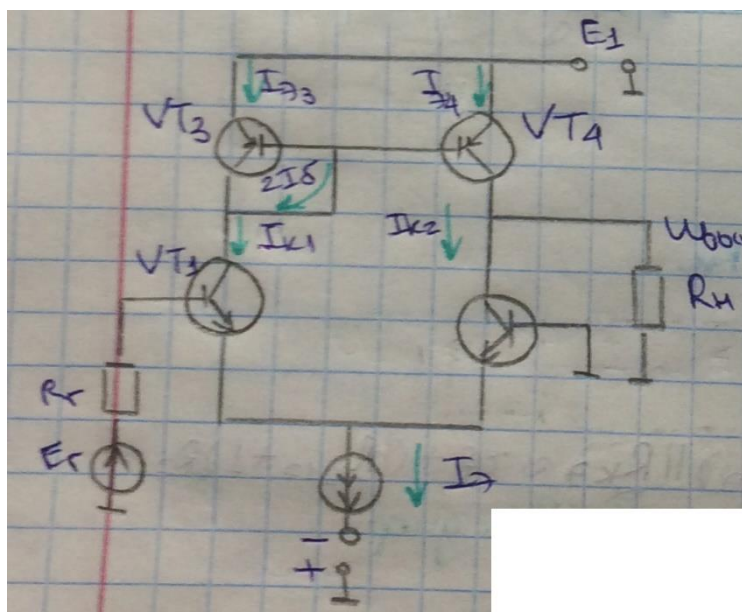 E1
Iэ3
Iэ4
VT3
VT4
2Iб
Iк1
Iк2
Uвых
VT1
Rн
Rг
Eг
Iэ
−
+